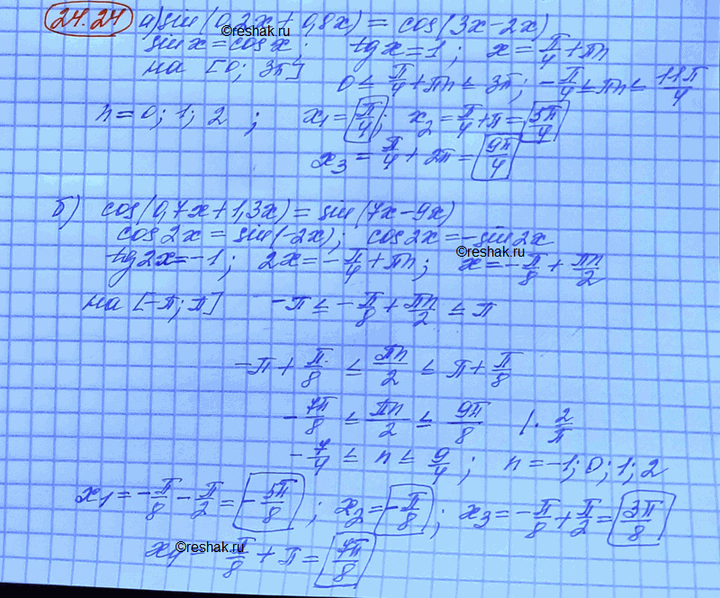 24.24 а) sin(0,2x + 0,8x) = cos(3x-2x)
sin x = cos x; tg x = 1; x = π/4 + πn
©reshak.ru
на [0; 3π] 0 ≤ π/4 + πn ≤ 3π; -π/4 ≤ πn ≤ 11π/4
n = 0; 1; 2 ; x₁ = π/4; x₂ = π/4 + π = 5π/4
x₃ = π/4 + 2π = 9π/4
б) cos(0,7x + 1,3x) = sin(7x - 9x)
cos 2x = sin(-2x); cos 2x = -sin 2x
©reshak.ru
tg 2x = -1; 2x = -π/4 + πn; x = -π/8 + πn/2
на [-π; π] -π ≤ -π/8 + πn/2 ≤ π
-π + π/8 ≤ πn/2 ≤ π + π/8
-7π/8 ≤ πn/2 ≤ 9π/8 | · 2/π
-7/4 ≤ n ≤ 9/4; n = -1; 0; 1; 2
x₁ = -π/8 - π/2 = -5π/8; x₂ = -π/8; x₃ = -π/8 + π/2 = 3π/8
©reshak.ru
x₄ = -π/8 + π = 7π/8